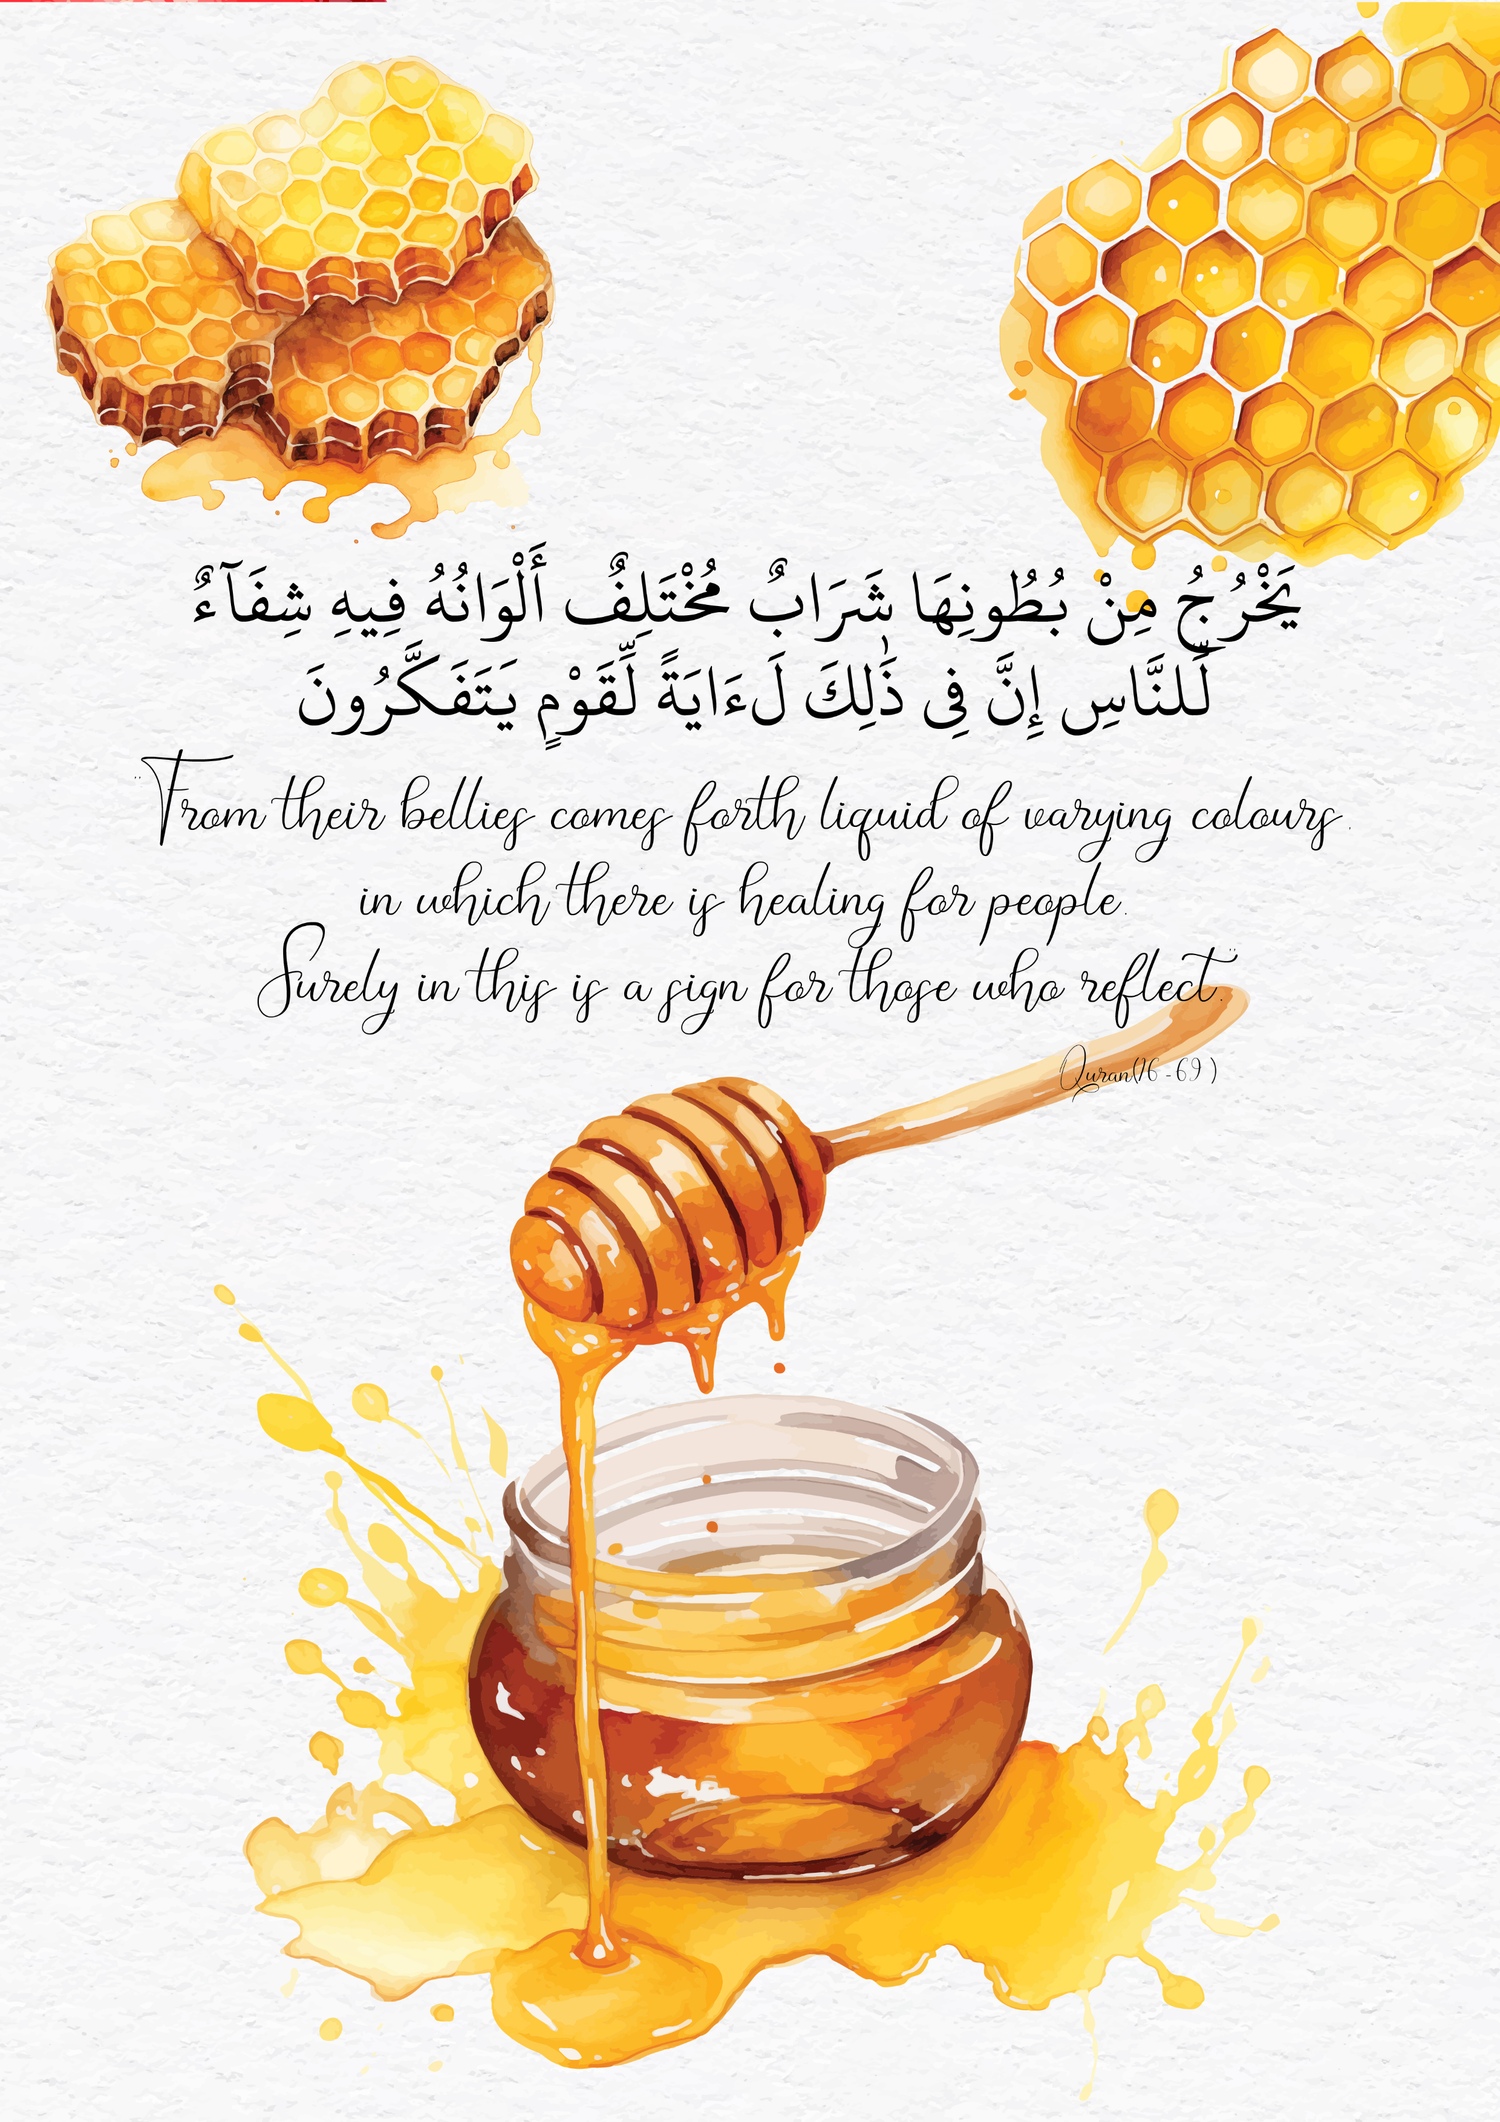 يَخْرُجُ مِنْ بُطُونِهَا شَرَابٌ مُخْتَلِفٌ أَلْوَانُهُ فِيهِ شِفَآءٌ
لِّلنَّاسِ إِنَّ فِى ذَٰلِكَ لَءَايَةً لِّقَوْمٍ يَتَفَكَّرُونَ
"From their bellies comes forth liquid of varying colours,
in which there is healing for people.
Surely in this is a sign for those who reflect."
Quran(16-69)